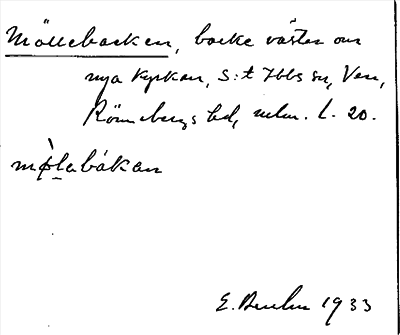 Möllebacken, backe väster om
nya kyrkan, S:t Ibbs sn, Ven,
Rönnebergs hd, mlm. L. 20.
mø̀labákan
E. 1933